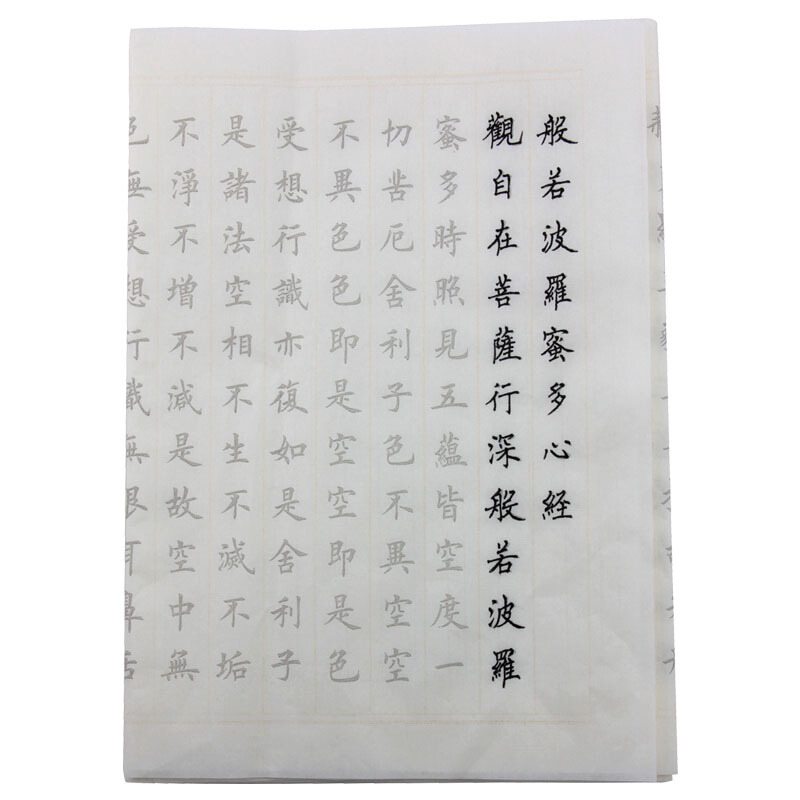 般若波羅蜜多心経
觀自在菩薩行深般若波羅
蜜多時照見五蘊皆空度一
切苦厄舍利子色不異空空
不異色色即是空空即是色
受想行識亦復如是舍利子
是諸法空相不生不滅不垢
不淨不增不減是故空中無
色無受想行識無眼耳鼻舌